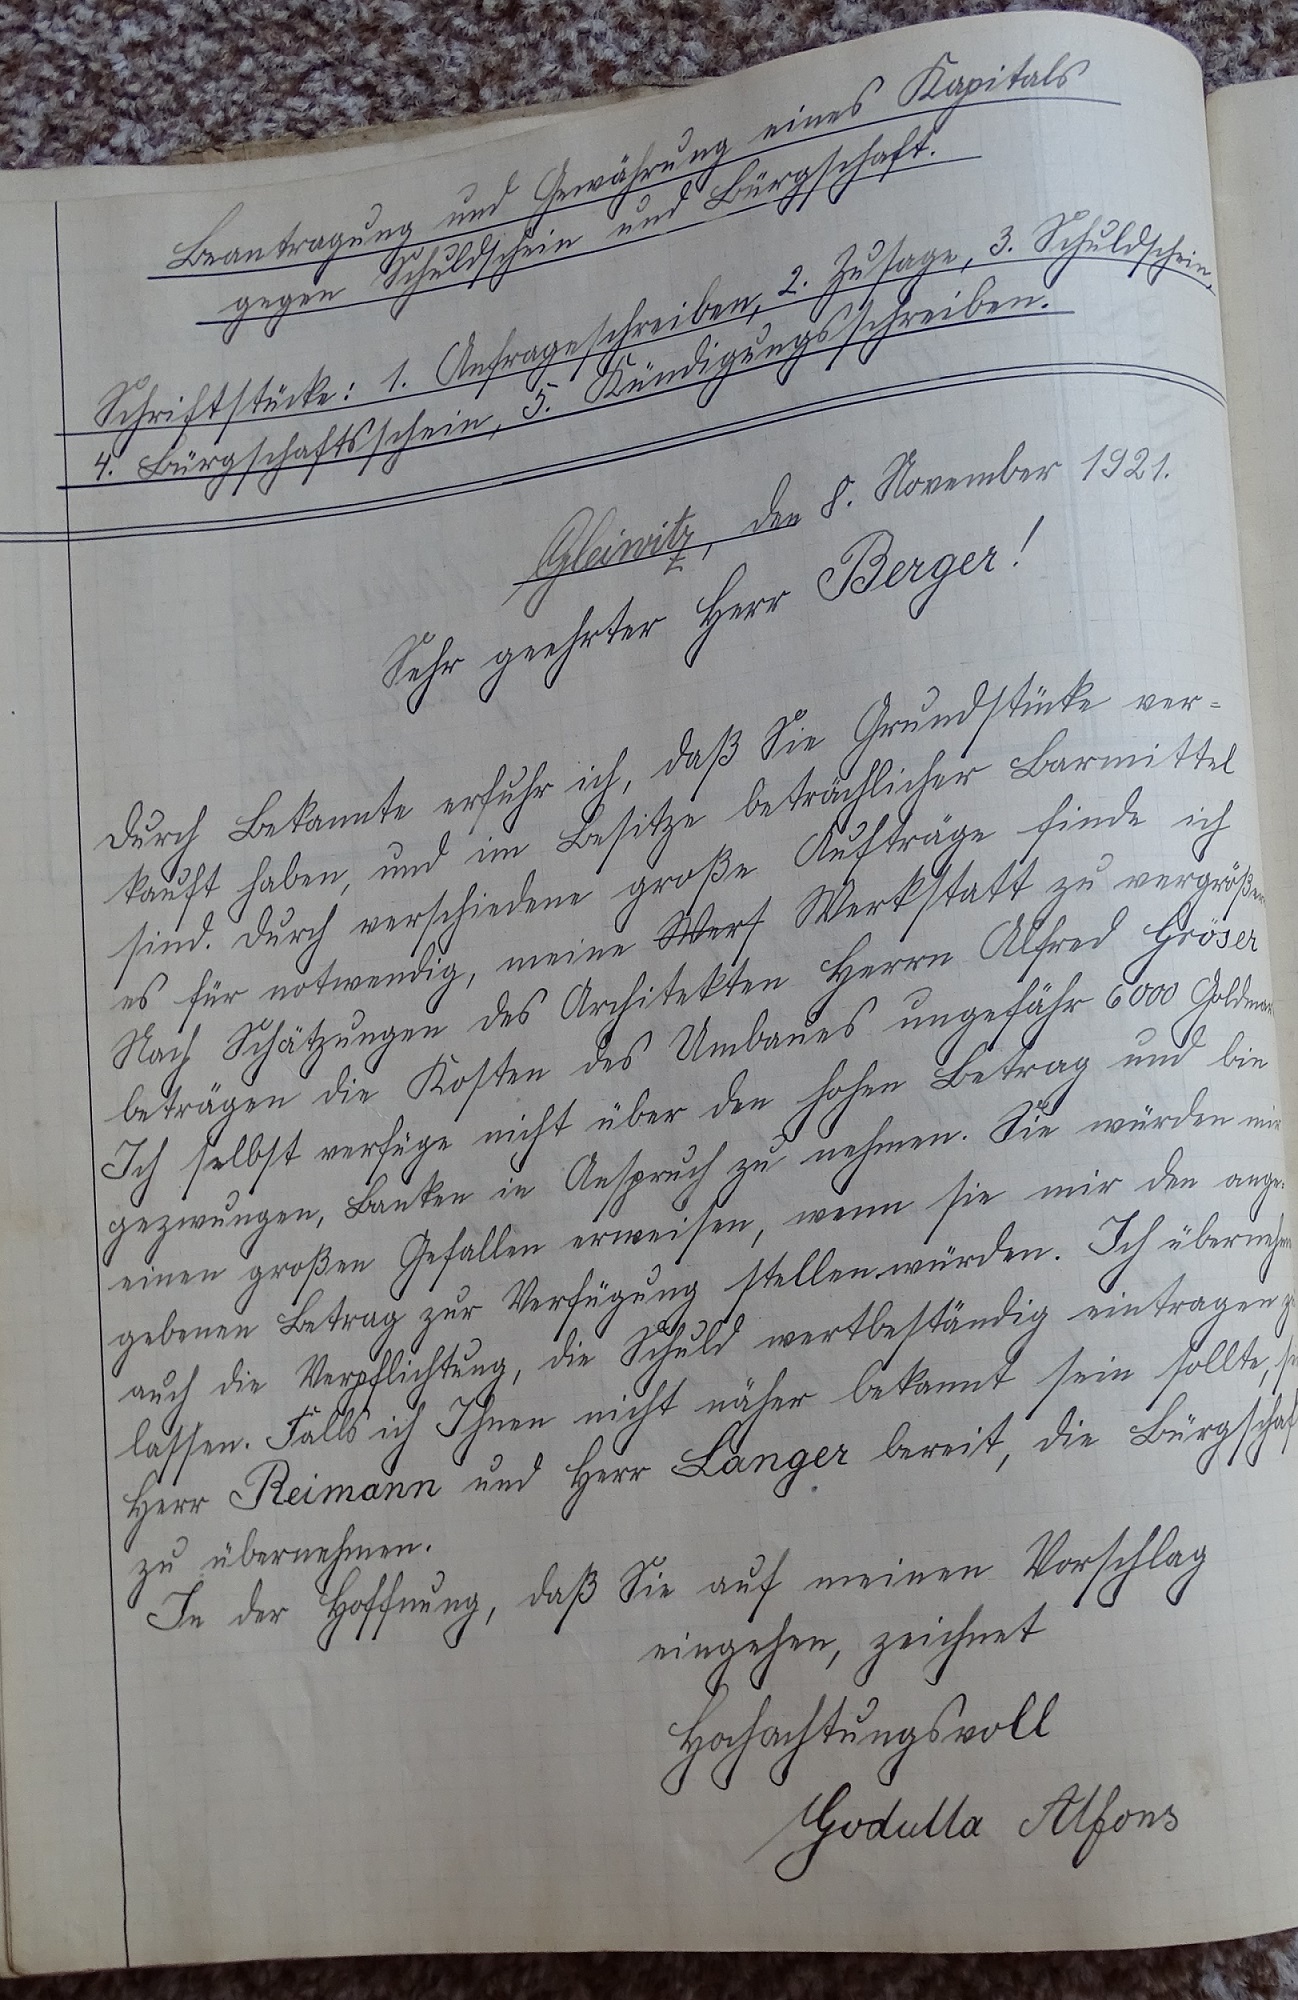 Beantragung und Gewährung eines Kapitals
gegen Schuldschein und Bürgschaft.
Schriftstücke: 1. Anfrageschreiben, 2. Zusage, 3. Schuldschein,
4. Bürgschaftsschein, 5. Kündigungsschreiben.
Gleiwitz, den 8. November 1921.
Sehr geehrter Herr Berger!
Durch Bekannte erfuhr ich, daß Sie Grundstücke ver=
kauft haben, und im Besitze beträchlicher Barmittel
sind. Durch verschiedene große Aufträge finde ich
es für notwendig, meine Werk Werkstatt zu vergrößern
Nach Schätzungen des Architekten Herrn Alfred Gröser
beträgen die Kosten des Umbaues ungefähr 6000 Goldmar
Ich selbst verfüge nicht über den hohen Betrag und bin
gezwungen, Banken in Anspruch zu nehmen. Sie würden mir
einen großen Gefallen erweisen, wenn sie mir den ange=
gebenen Betrag zur Verfügung stellen würden. Ich übernehm
auch die Verpflichtung, die Schuld wertbeständig eintragen z
lassen. Falls ich Ihnen nicht näher bekannt sein sollte,
Herr Reimann und Herr Langer bereit, die Bürgschaf
zu übernehmen.
In der Hoffnung, daß Sie auf meinen Vorschlag
eingehen, zeichnet
Hochachtungsvoll
Godulla Alfons